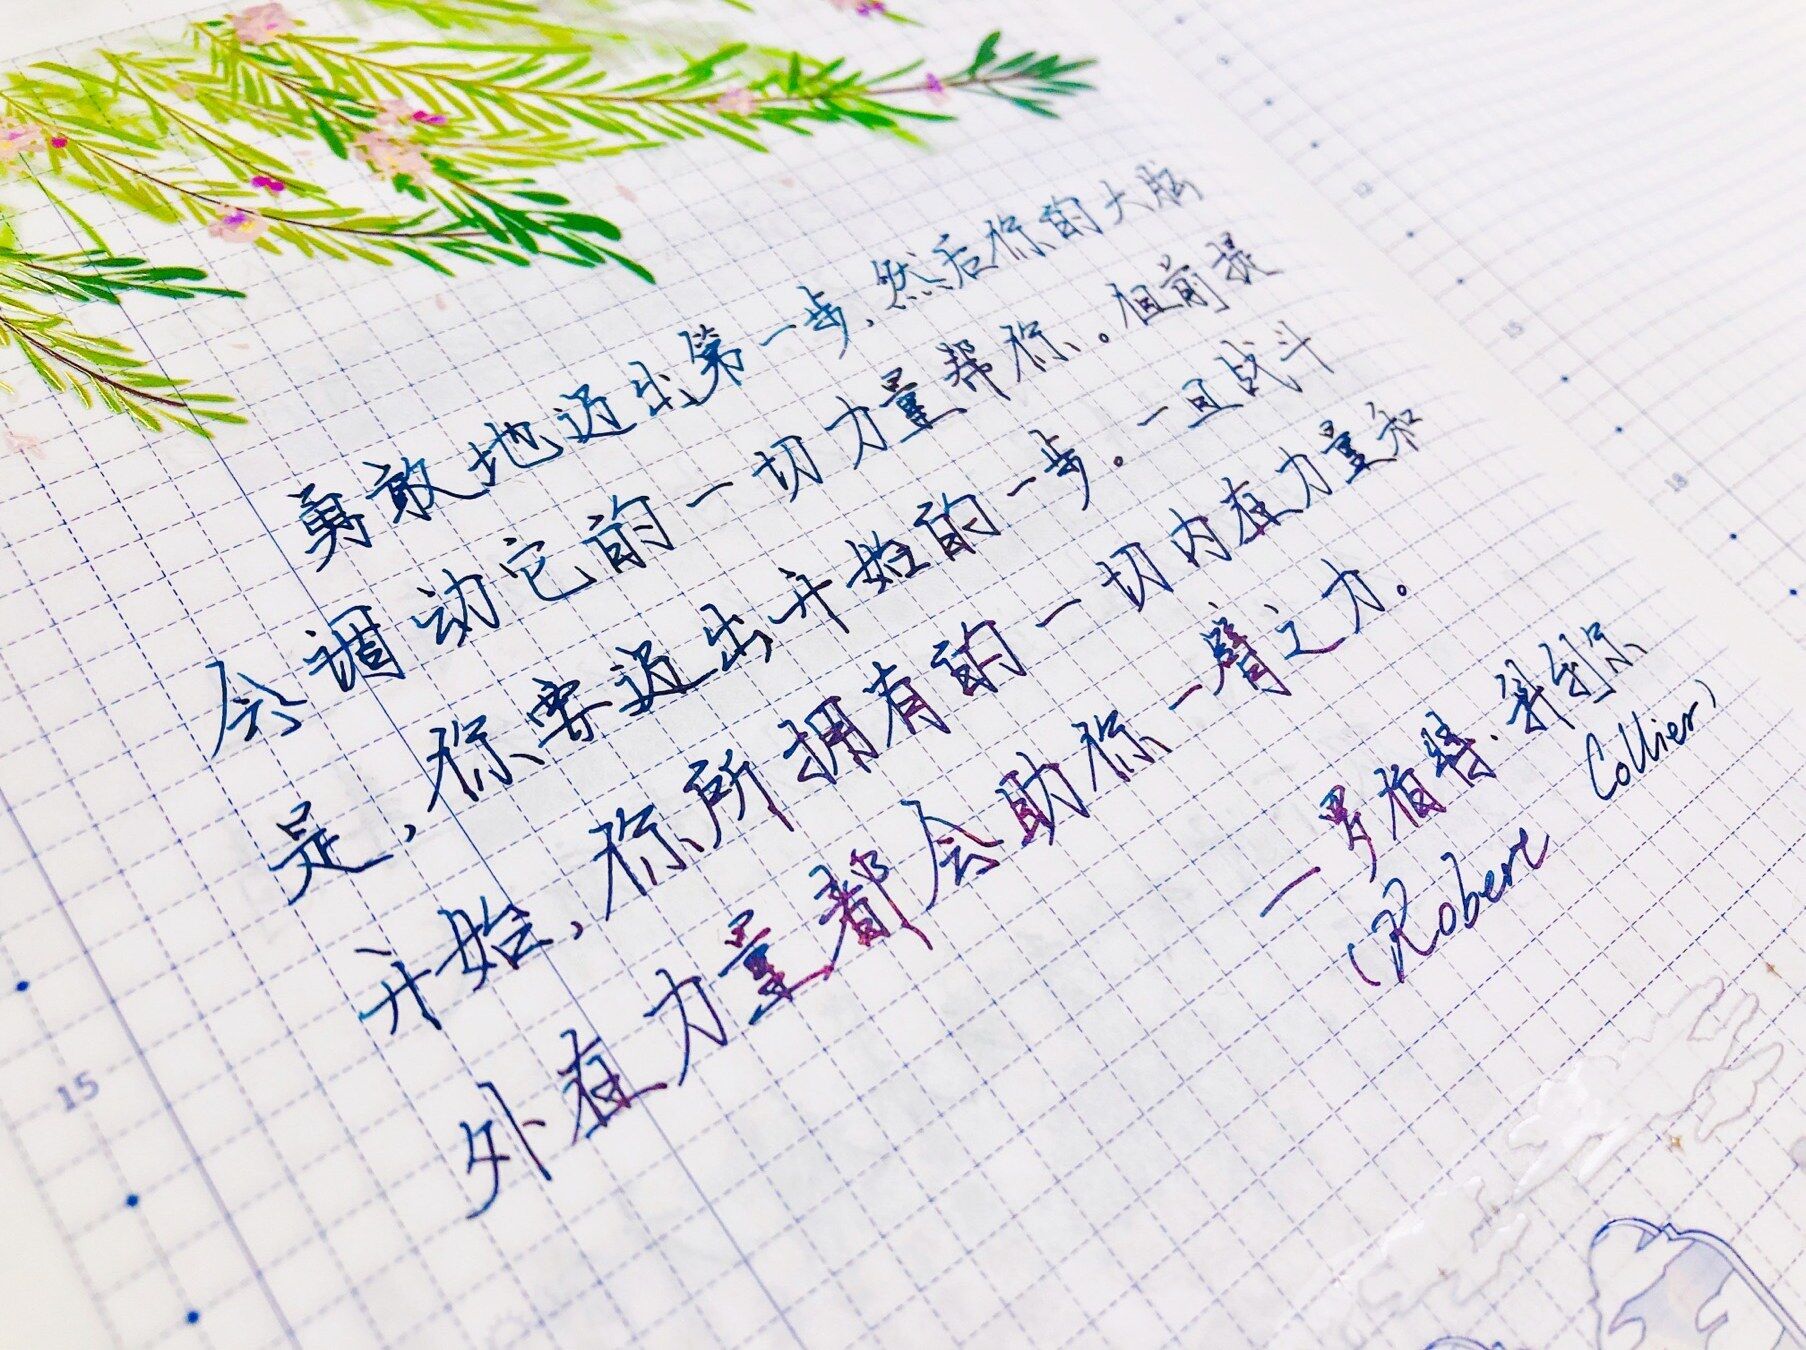 勇敢地迈出第一步,然后你的大脑
会调动它的一切力量帮你。但前提
是,你要迈出开始的一步。一旦战斗
开始,你所拥有的一切内在力量和
外在力量都会助你一臂之力。
—罗伯特·科利尔
(Robert Collier)
15
12
15
18